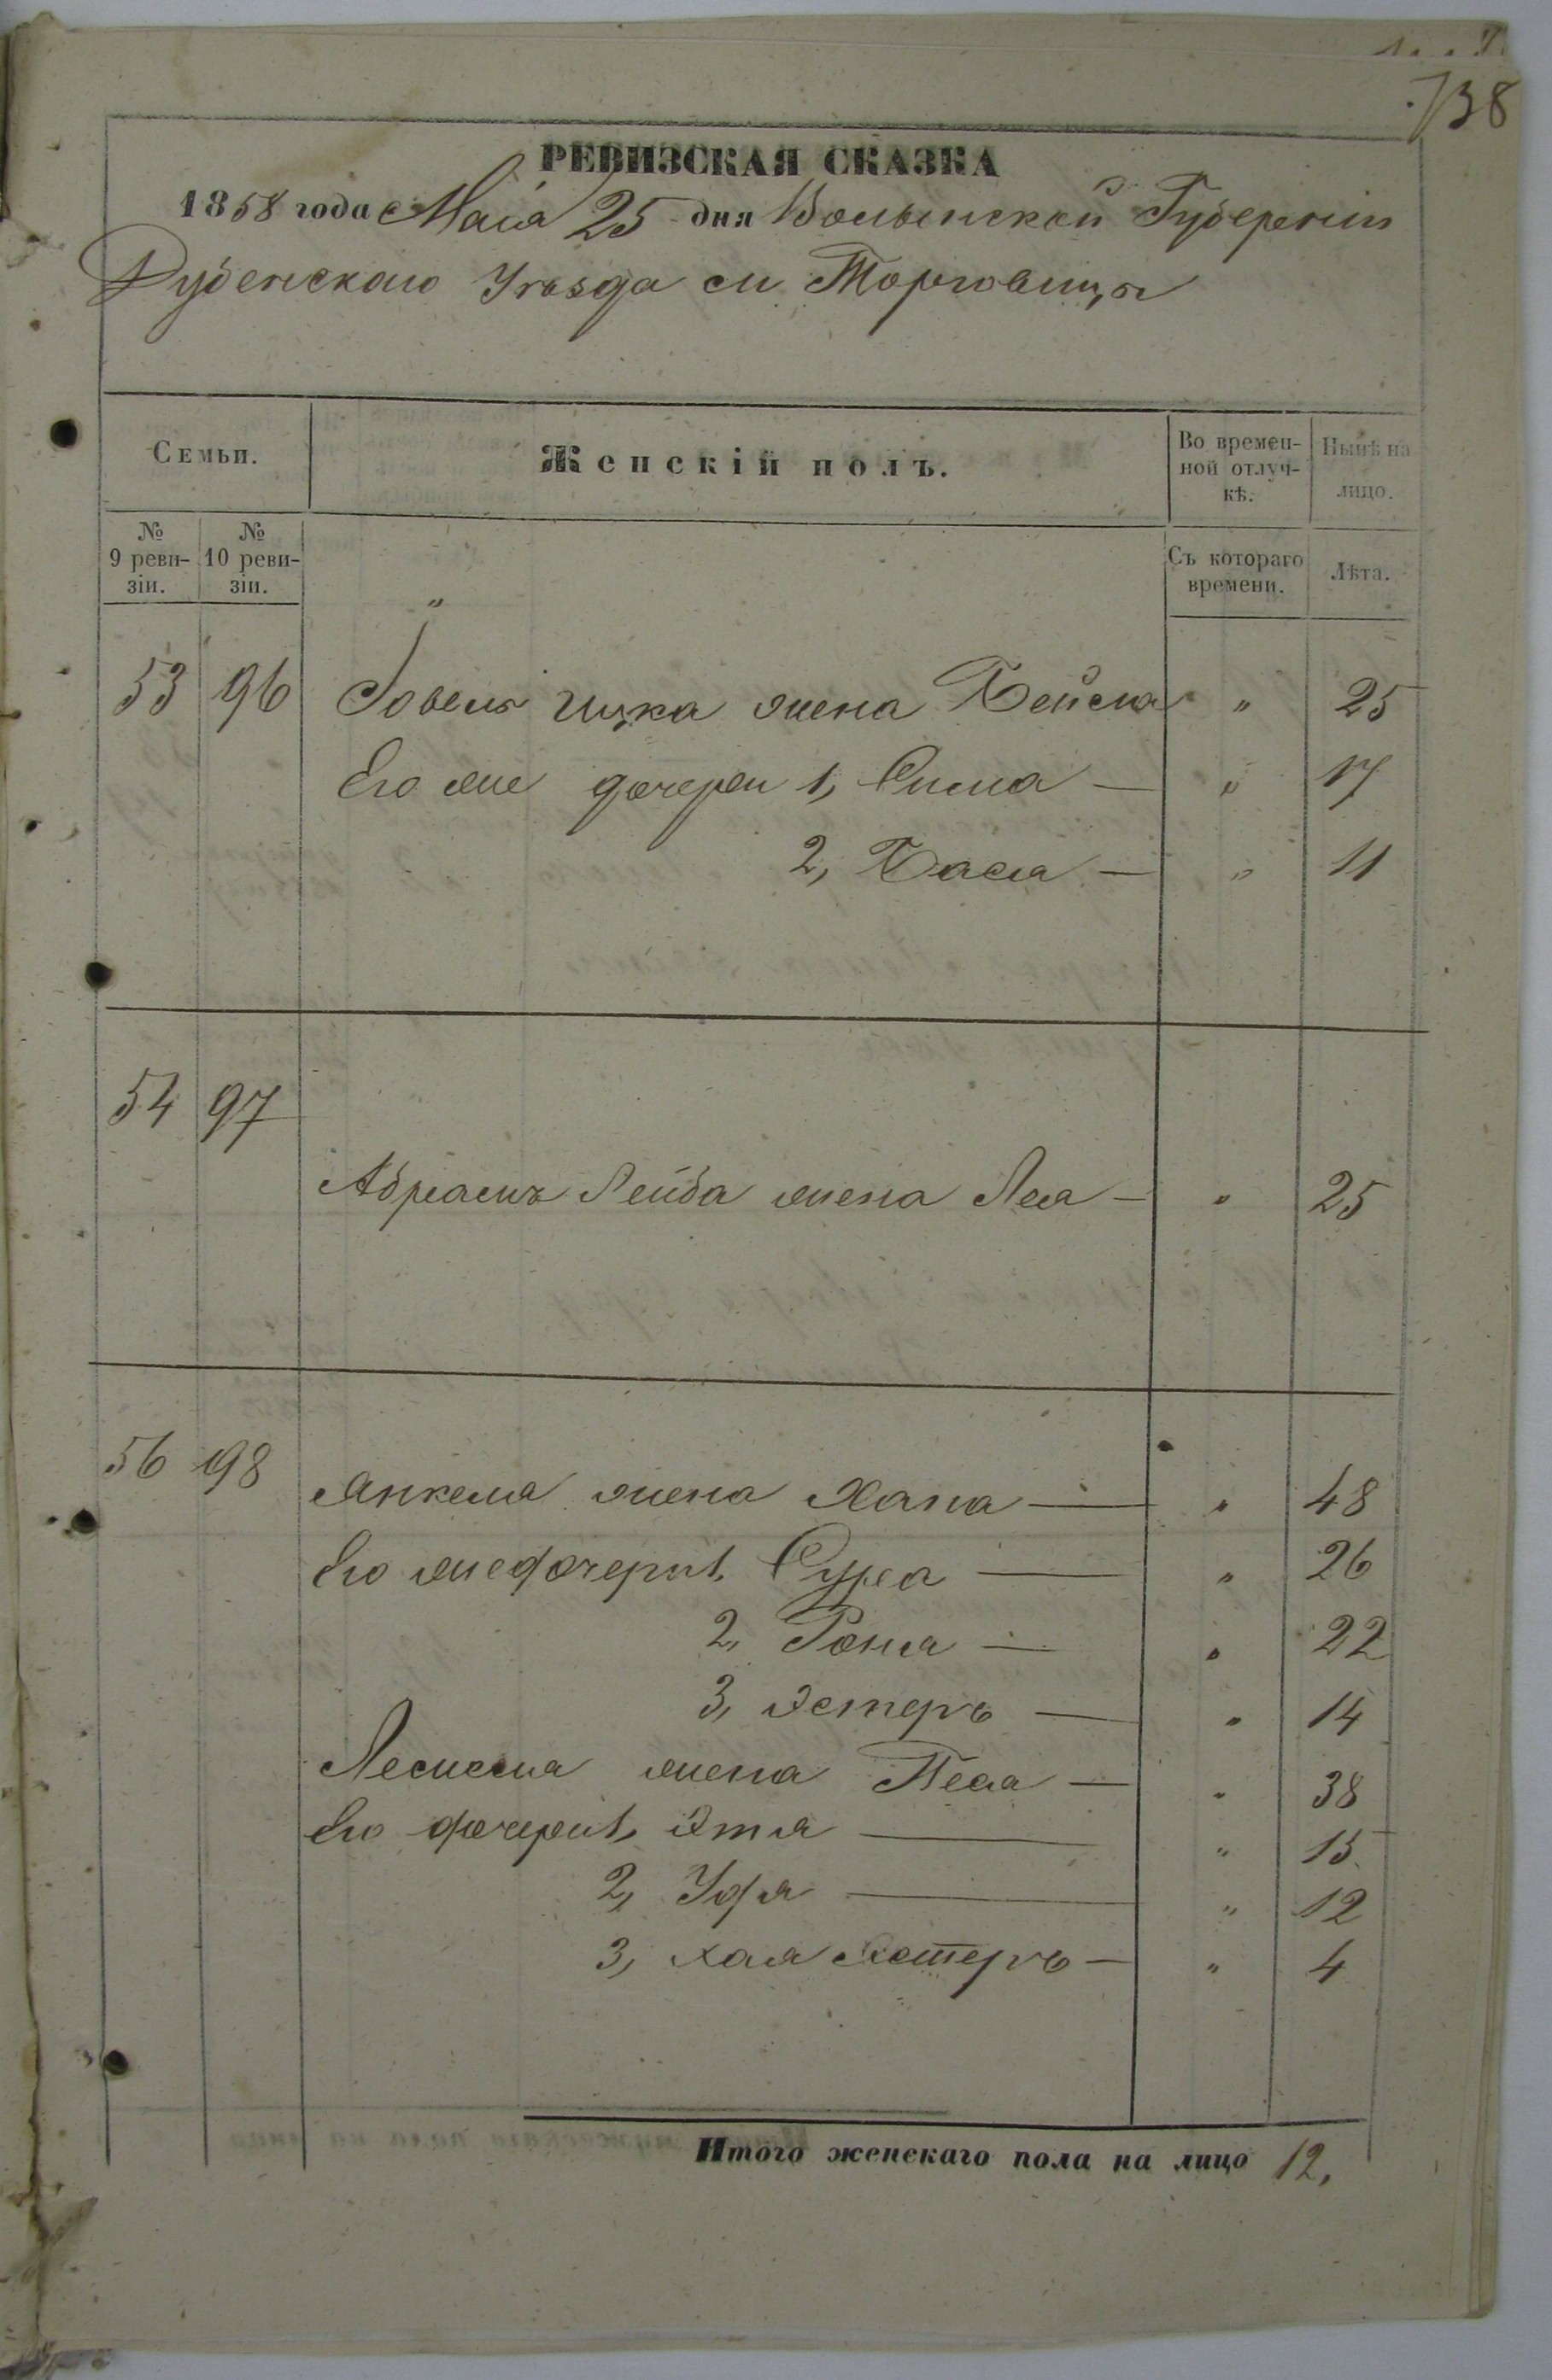 738
РЕВИЗСКАЯ СКАЗКА
1858 года Маія 25 дня Волынской Губерніи
Дубенскаго Уѣзда м Торговицы
Семьи.
Женскій полъ.
Во времен-
ной отлуч-
кѣ.
Нынѣ на
лицо.
№
9 реви-
зіи.
№
10 реви-
зіи.
Съ котораго
времени.
Лѣта.
"
53 96 Іовель Ицка жена Бейла " 25
Его же дочери 1, Сима — " 17
2, Бася — " 11
54 97
Абрамъ Лейба жена Лея — " 25
56 98
Янкеля жена Хана — " 48
Его же дочери 1, Сура — " 26
2, Роня — " 22
3, Эстеръ — " 14
жена Песя — " 38
Его дочери 1, Этя — " 15
2, Удя — " 12
3, Хая Эстеръ — " 4
Итого женскаго пола на лицо 12,